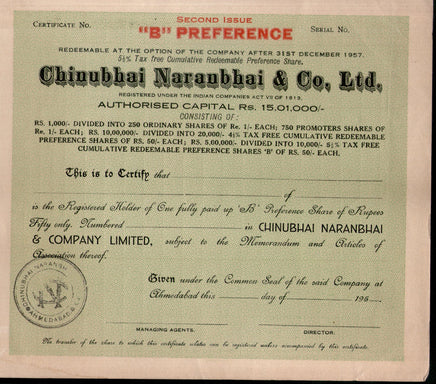 CERTIFICATE No.
SECOND ISSUE
SERIAL No.
"B" PREFERENCE
REDEEMABLE AT THE OPTION OF THE COMPANY AFTER 31ST DECEMBER 1957.
5½% Tax free Cumulative Redeemable Preference Share.
Chinubhai Naranbhai & Co, Ltd.
REGISTERED UNDER THE INDIAN COMPANIES ACT VII OF 1913.
AUTHORISED CAPITAL Rs. 15,01,000/-
CONSISTING OF:
RS. 1,000/- DIVIDED INTO 250 ORDINARY SHARES OF Re. 1/- EACH; 750 PROMOTERS SHARES OF
Re. 1/- EACH; RS. 10,00,000/- DIVIDED INTO 20,000/- 4½% TAX FREE CUMULATIVE REDEEMABLE
PREFERENCE SHARES OF RS. 50/- EACH; RS. 5,00,000/- DIVIDED INTO 10,000/- 5½% TAX FREE
CUMULATIVE REDEEMABLE PREFERENCE SHARES 'B' OF RS. 50/- EACH.
This is to Certify that
of
is the Registered Holder of One fully paid up 'B' Preference Share of Rupees
Fifty only. Numbered in CHINUBHAI NARANBHAI
& COMPANY LIMITED, subject to the Memorandum and Articles of
Association thereof.
Given under the Common Seal of the said Company at
Ahmedabad this day of 196
CHINUBHAI NARANBHAI
AHMEDABAD
MANAGING AGENTS.
DIRECTOR.
The transfer of the share to which this certificate relates can be registered unless accompanied by this certificate.